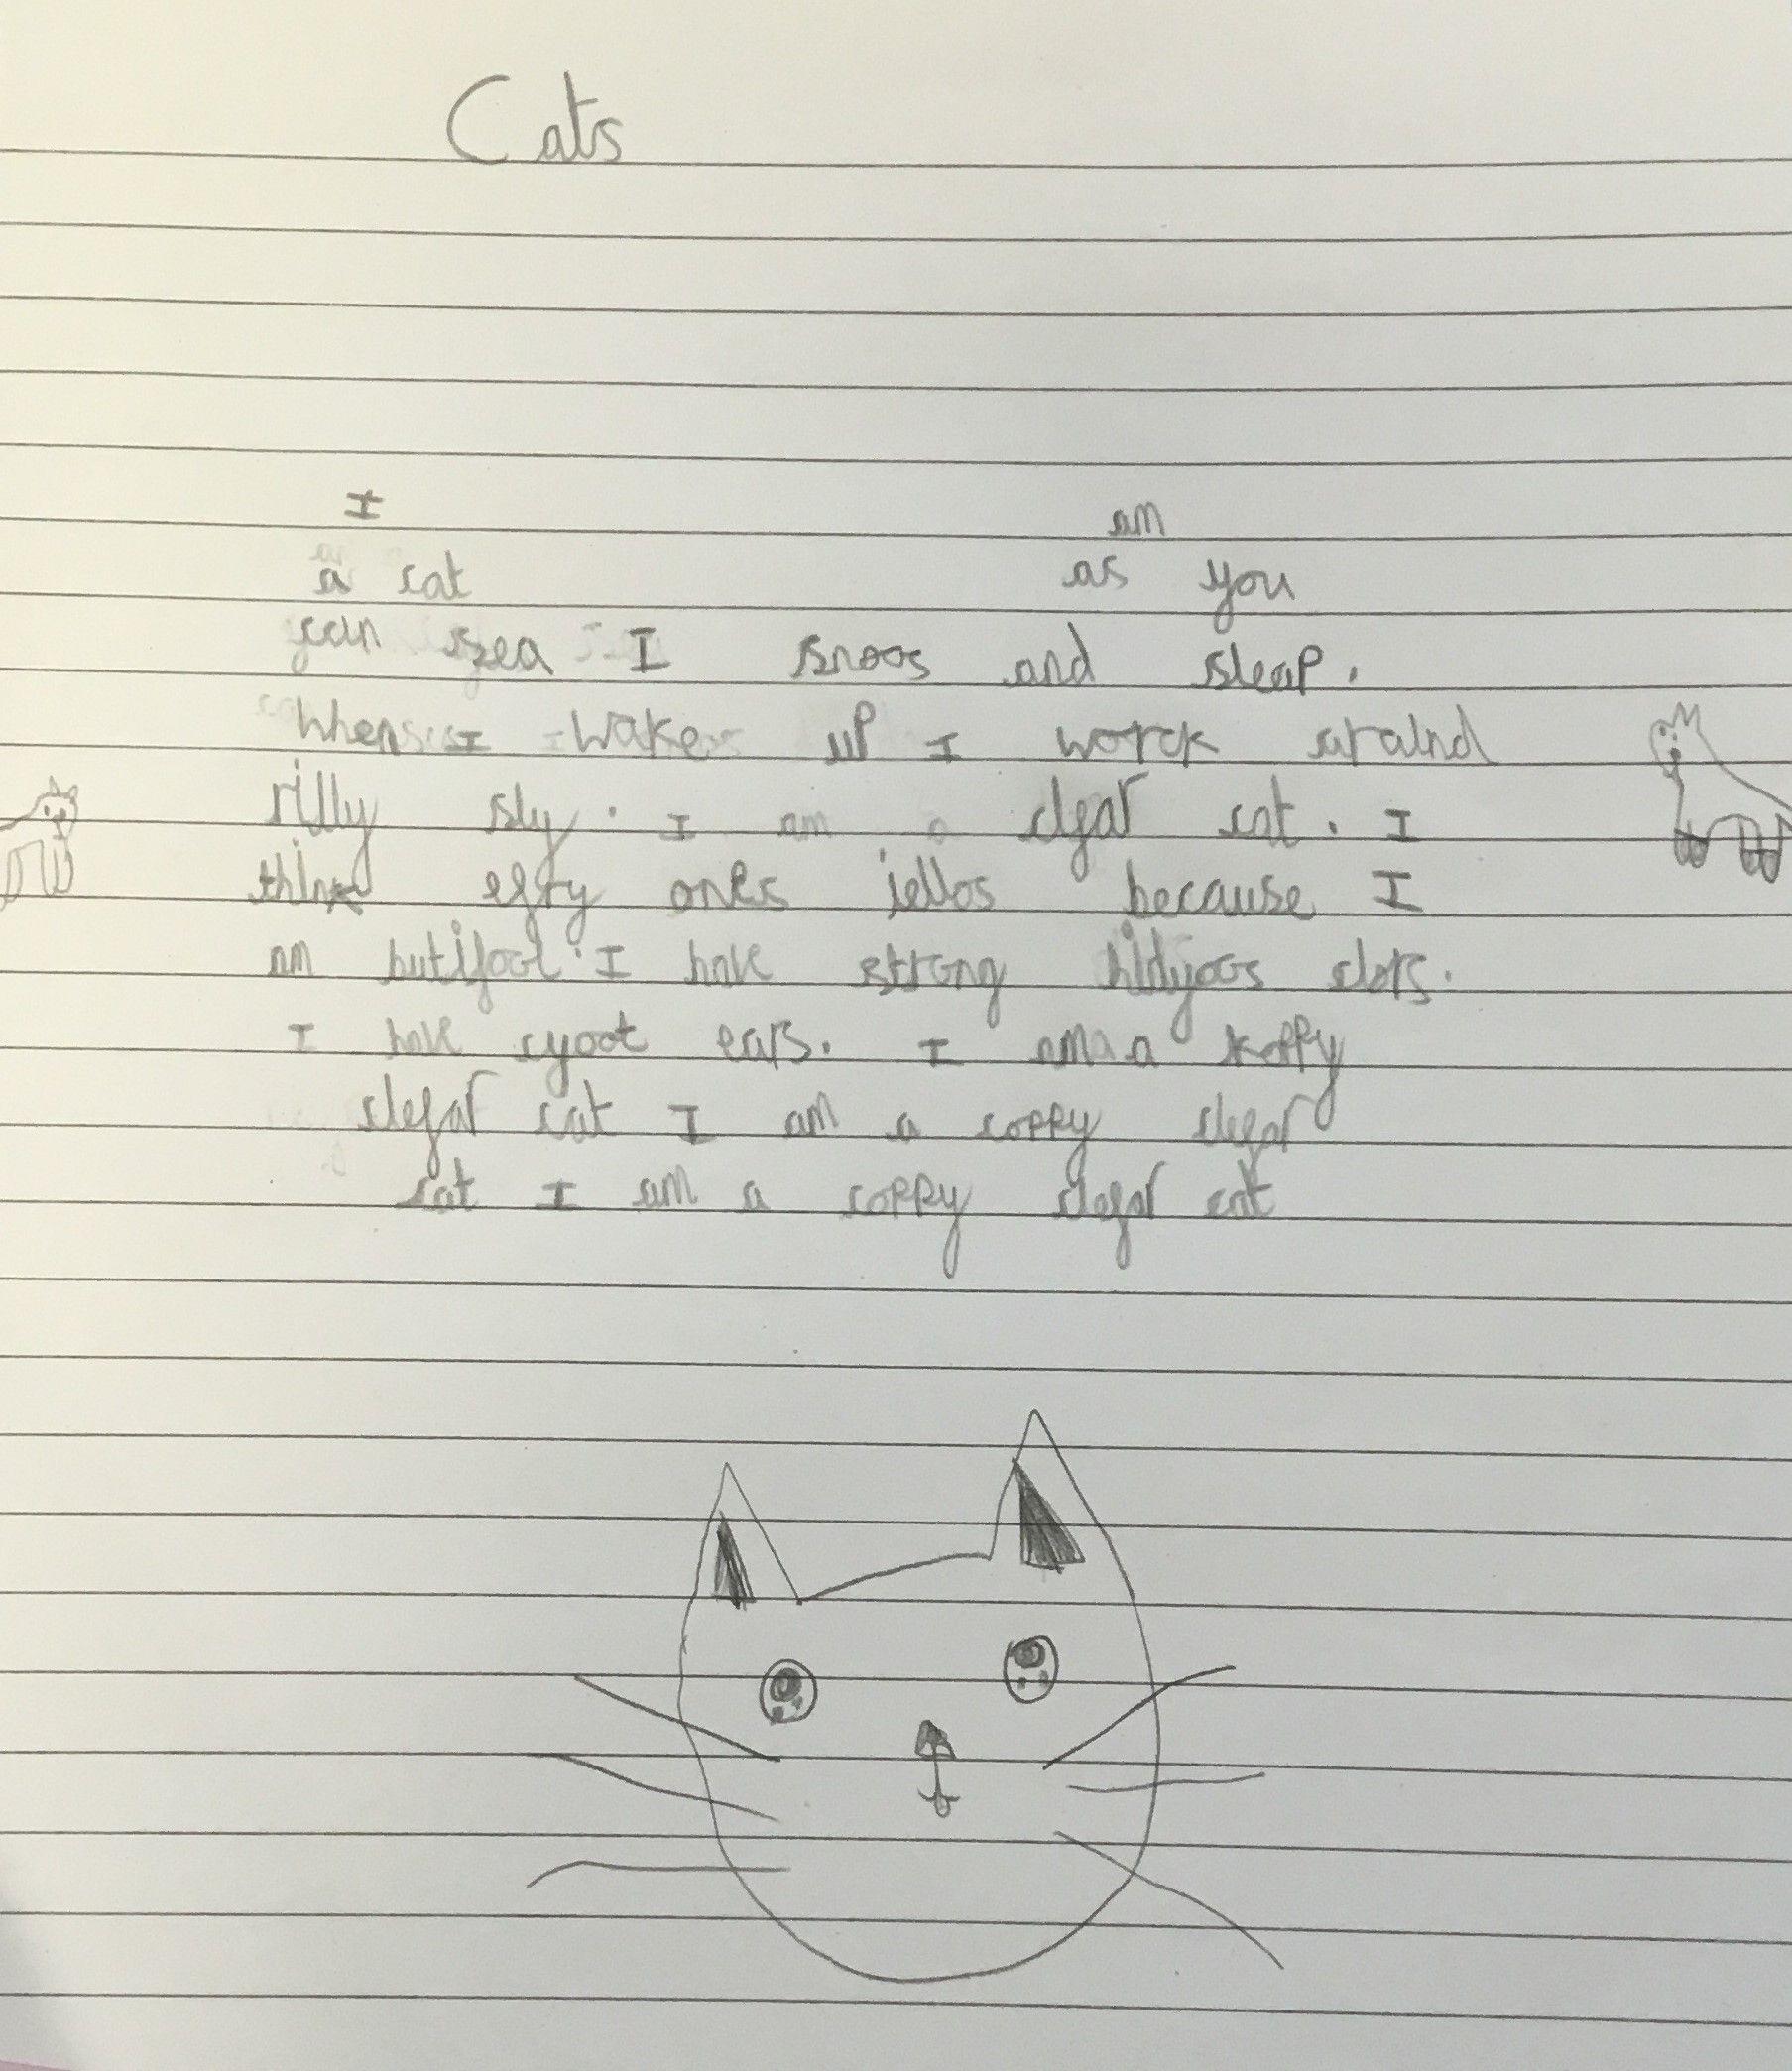 Cats
I am
a cat as you
can sea I snoos and sleap.
When I wake up I worck araind
rilly sly. I am a clefar cat. I
think efry ones jellos because I
am butifool. I have strong hidyoos clors.
I have cyoot ears. I am a koppy
clefar cat I am a coppy clefar
cat I am a coppy clefar cat